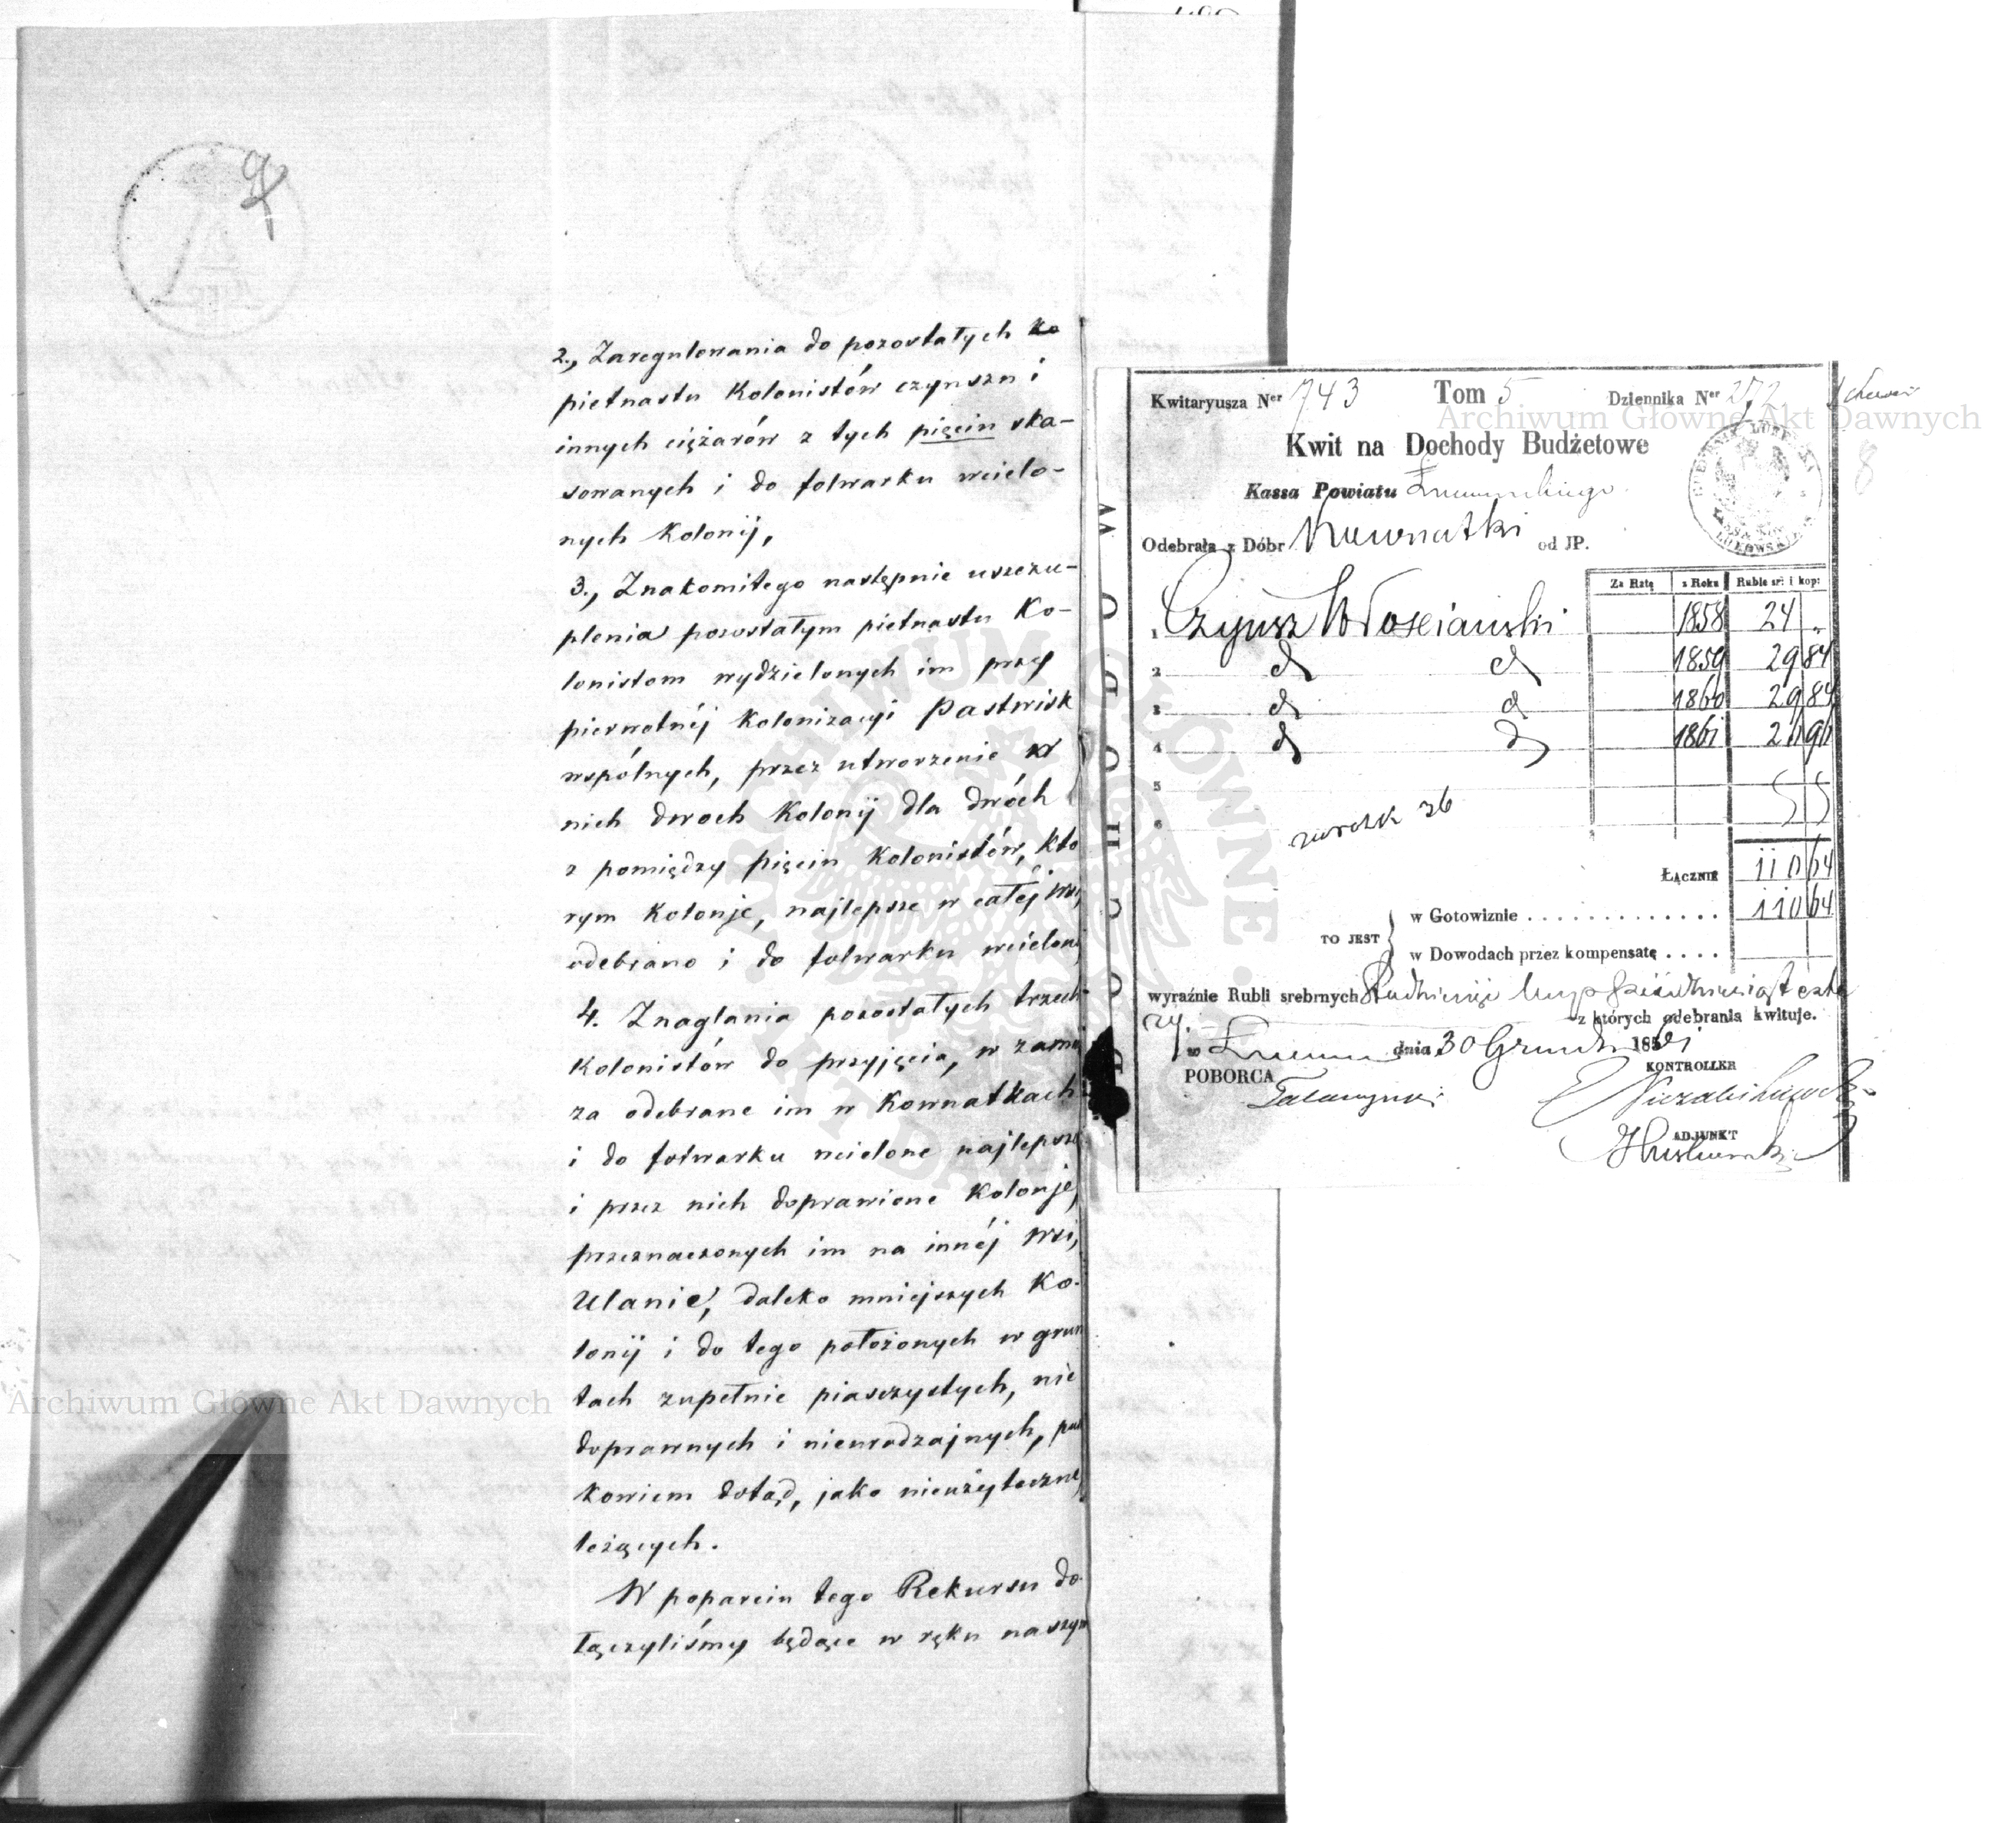 2., Zaregulowania do pozostałych
pietnastu Kolonistów czynszu i
innych ciężarów z tych pięciu ska-
sowanych i do folwarku wcielo-
nych Kolonij,
3., Znakomitego następnie uszczu-
plenia pozostałym pietnastu Ko-
lonistom wydzielonych im przy
pierwotnéj Kolonizacyi Pastwisk
wspólnych, przez utworzenie w
nich dwoch Kolonij dla dwóch
z pomiędzy pięciu Kolonistów, któ
rym Kolonje, najlepsze w całéj wsi,
odebrano i do folwarku wcielono
4. Znaglania pozostałych trzech
Kolonistów do przyjęcia, w zamian
za odebrane im w Kownatkach
i do folwarku wcielone najlepsze
i przez nich doprawione Kolonje,
przeznaczonych im na innéj wsi,
Ulanie, daleko mniejszych Ko-
lonij i do tego położonych w grun
tach zupełnie piaszczystych, nie
doprawnych i nieurodzajnych,
kowiem dotąd, jako nieużyteczne
leżących.
W poparciu tego Rekursu do
łączyliśmy będące w ręku naszym
Kwitaryusza Ner 743 Tom 5 Dziennika Ner 272
8
Kwit na Dochody Budżetowe
Kassa Powiatu
Odebrała z Dóbr Kownatki od JP.
Za Ratę z Roku Ruble sr: i kop:
1 Czynsz Włościański 1858 24 "
2 d d 1859 29 84
3 d d 1860 29 84
4 d d 1861 26 96
5
6
ŁĄCZNIE 110 64
TO JEST w Gotowiznie 110 64
w Dowodach przez kompensatę
wyraźnie Rubli srebrnych
ry. z których odebrania kwituje.
w dnia 30 Grudn 1861
POBORCA KONTROLLER
ADJUNKT
DOCHODOW
Archiwum Główne Akt Dawnych
Archiwum Główne Akt Dawnych